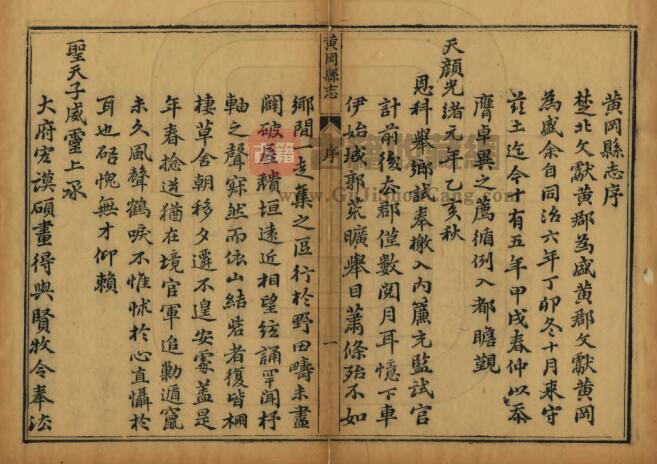 黃岡縣志序
楚北文獻黃郡為盛黃郡文獻黃岡
為盛余自同治六年丁卯冬十月來守
茲土迄今十有五年甲戌春仲以忝
膺卓異之薦循例入都瞻覲
天顏光緒元年乙亥秋
恩科舉鄉試奉檄入內簾充監試官
計前後去郡僅數閱月耳憶下車
伊始城郭荒曠舉目蕭條殆不如
黃岡縣志
序
一
鄉間一走集之區行於野田疇未盡
闢破屋積垣遠近相望絃誦罕聞杼
軸之聲寂然而依山結砦者復皆柵
棲草舍朝移夕遷不遑安處蓋是
年春捻逆猶在境官軍追勦遁竄
未久風聲鶴唳不惟怵於心直懾於
耳也硌愧無才仰賴
聖天子威靈上承
大府宏謨碩畫得與賢牧令奉法
古籍
www.GuJiShouCang.com